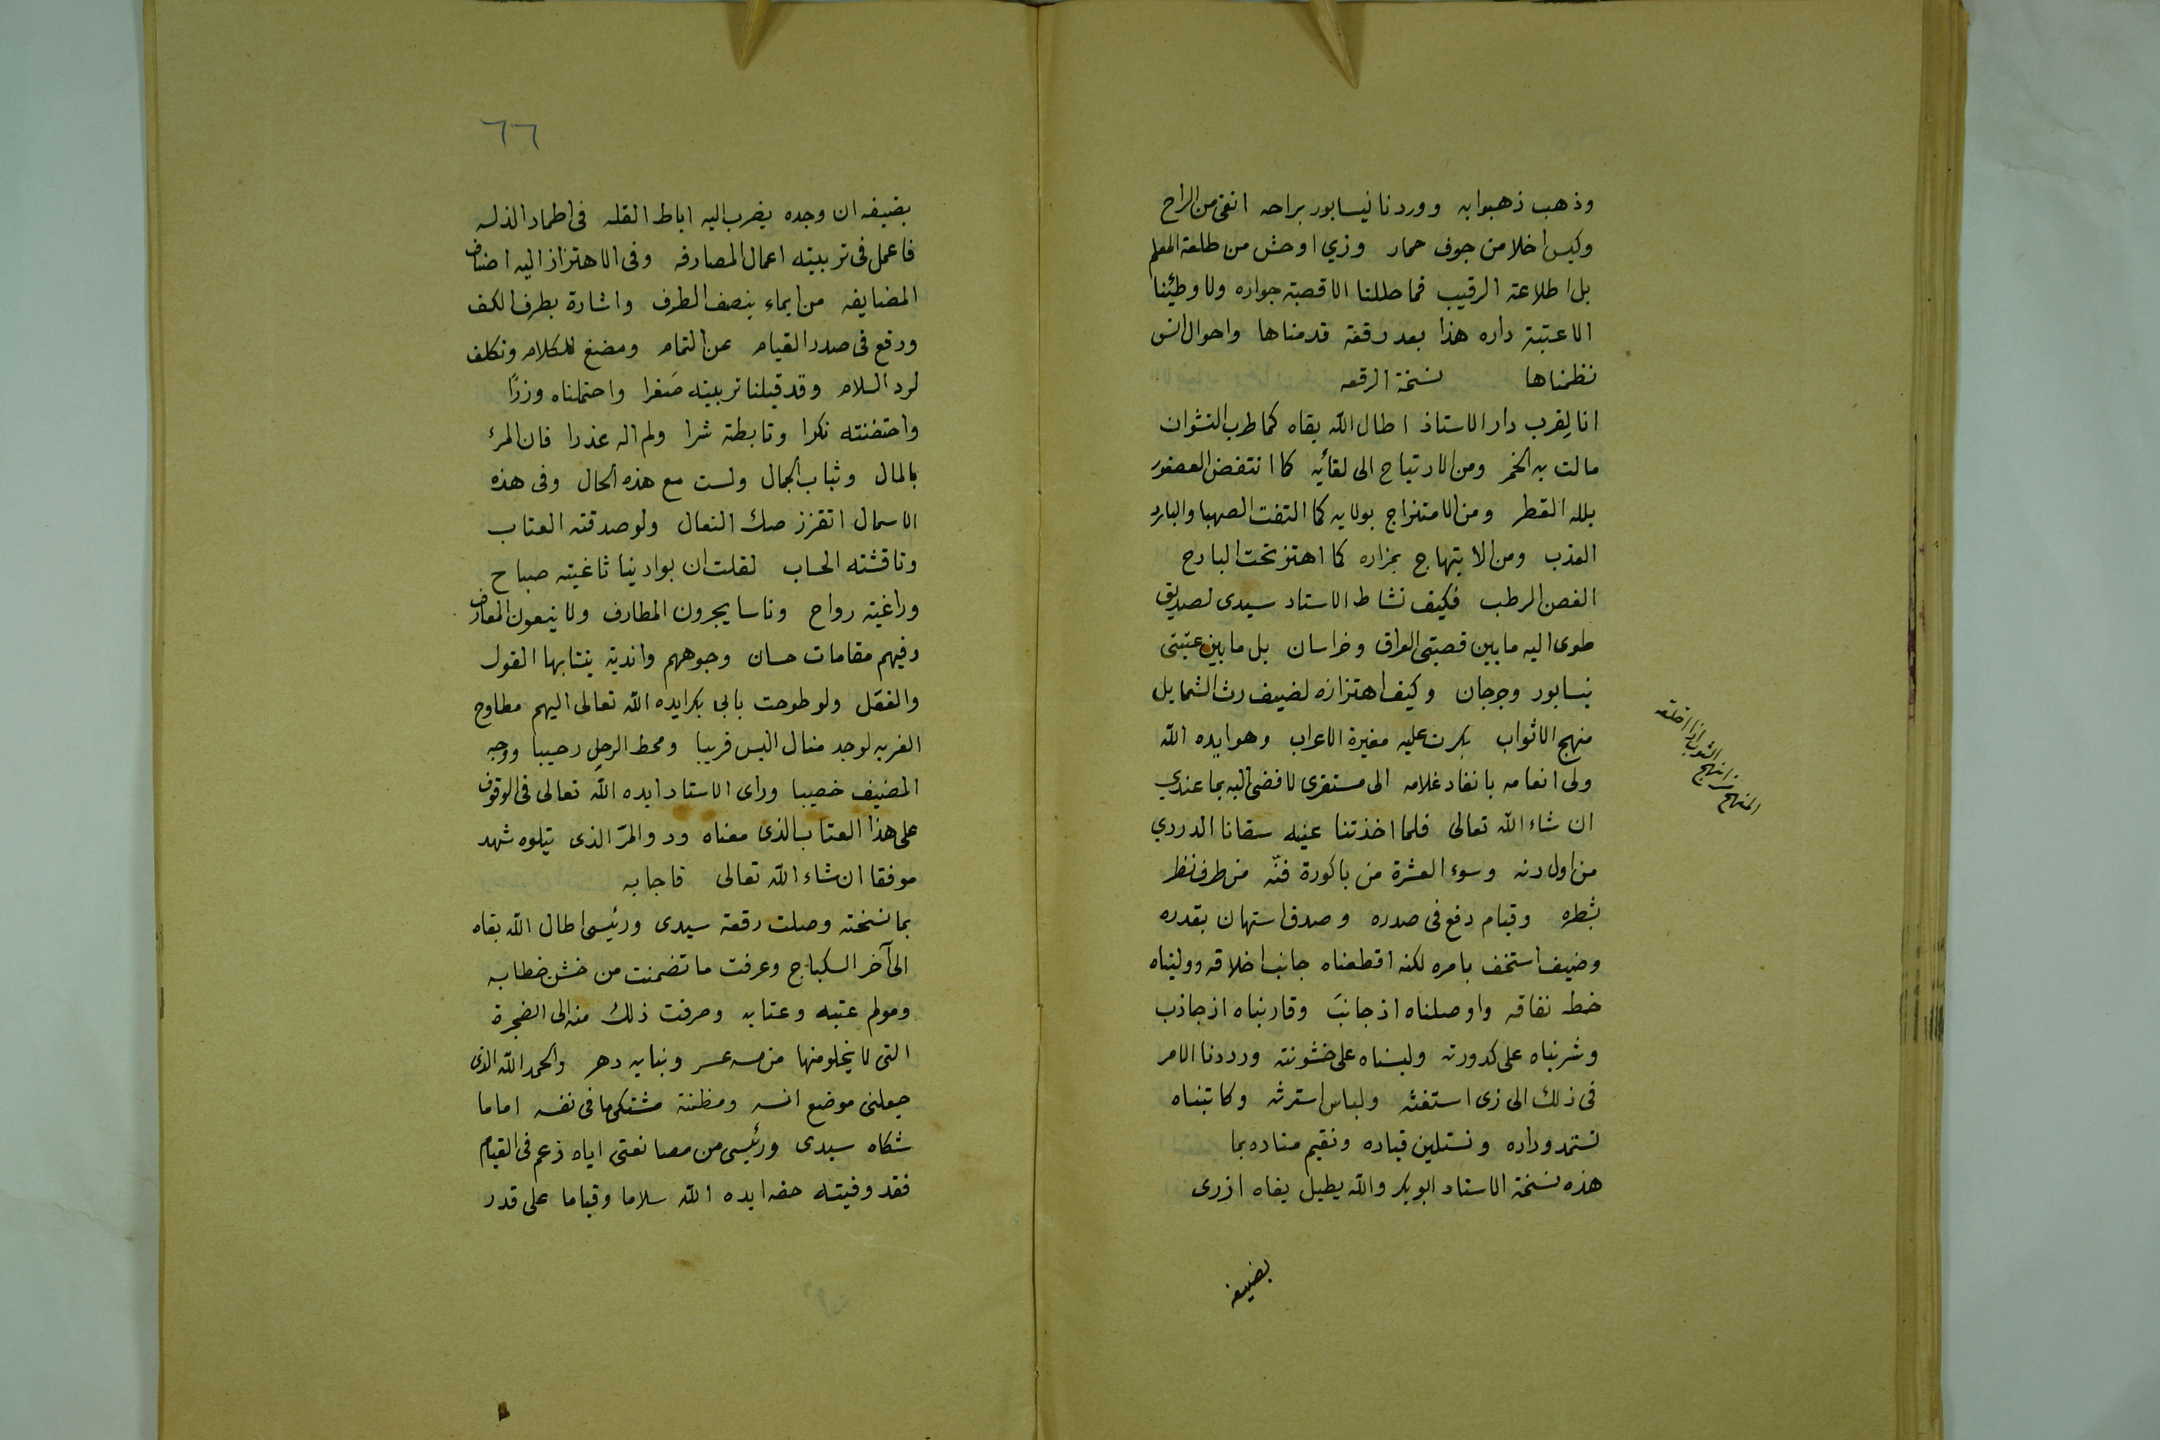 وذهب ذهبوا به ووردنا نيسابور براحه انقى من الراح
وكيس اخلا من جوف حمار وزي اوحش من طلعة المعلم
بل اطلاعة الرقيب فما حللنا الا قصبة جواره ولا وطئنا
الا عتبة داره هذا بعد رقعة قدمناها واحوال انس
نظمناها نسخة الرقعه
انا لقرب دار الاستاذ اطال الله بقاه كما طرب النشوان
مالت به الخمر ومن الارتياح الى لقائه كما انتفض العصفور
بلله القطر ومن الامتزاج بولايه كما التفت الصهبا والبارد
العذب ومن الابتهاج بمزاره كما اهتز تحت البارح
الغصن الرطب فكيف نشاط الاستاد سيدى لصديق
طوى اليه ما بين قصبتى العراق وخراسان بل ما بين عتبتى
نيسابور وجرجان وكيف اهتزازه لضيف رث الشمايل
منهج الاثواب بكرت عليه مغيرة الاعراب وهو ايده الله
ولى انعامه بانفاد غلامه الى مستقرى لافضى اليه بما عندي
ان شاء الله تعالى فلما اخذتنا عينه سقانا الدردي
من اول دنه وسوء العشرة من باكورة فنّه من طرف نظر
بشطره وقيام دفع فى صدره وصدق استهان بقدره
وضيف استخف بامره لكنه اقطعناه جانب اخلاقه ووليناه
خطه نفاقه واوصلناه اذ جانبَ وقاربناه اذ جاذب
وشربناه على كدورته ولبسناه على خشونته ورددنا الامر
فى ذلك الى زى استغثه ولباس استرثه وكاتبناه
نستمد وداده ونستلين قياده ونقيم مناده بما
هذه نسخة الاستاد ابو بكر والله يطيل بقاه ازرى
بضيفه
المنهج من انهج الثوب اذا اخلقه
٦٦
بضيفه ان وجده يضرب اليه اباط القله فى اطمار الذله
فاعمل فى تربيته اعمال المصارفه وفى الاهتزاز اليه اصناف
المضايفه من ايماء بنصف الطرف واشارة بطرف الكف
ودفع فى صدر القيام عن التمام ومضغ للكلام وتكلف
لرد السلام وقد قبلنا تربيته صَغرا واحتملناه وزرًا
واحتضنته نكرا وتابطته شرا ولم اله عذرا فان المرء
بالمال وثياب الجمال ولست مع هذه الحال وفى هذه
الاسمال اتقزز صك النعال ولو صدقته العتاب
وناقشته الحساب لقلت ان بوادينا ثاغيته صباح
وراغية رواح وناسا يجرون المطارف ولا يمنعون المعارف
وفيهم مقامات حسان وجوههم واندية ينتابها القول
والفعل ولو طوحت بابى بكر ايده الله تعالى اليهم مطاوح
الغربه لوجد منال البس قريبا ومحط الرحل رحيبا ووجه
المضيف خصيبا وراى الاستاد ايده الله تعالى فى الوقوف
على هذا العتاب الذى معناه ود والمرّ الذى يتلوه شهد
موفقا ان شاء الله تعالى فاجابه
بما نسخته وصلت رقعة سيدى ورئيسى اطال الله بقاه
الى آخر السكباج وعرفت ما تضمنت من خشن خطابه
ومولم عتبه وعتابه وصرفت ذلك منه الى الضجرة
التى لا يخلو منها من مسه عسر ونبا به دهر والحمد الله الذى
جعلنى موضع انسه ومظنة مشتكى ما فى نفسه اما ما
شكاه سيدى ورئيسى من مصانعتى اياه زعم فى القيام
فقد وفيته حقه ايده الله سلاما وقياما على قدر